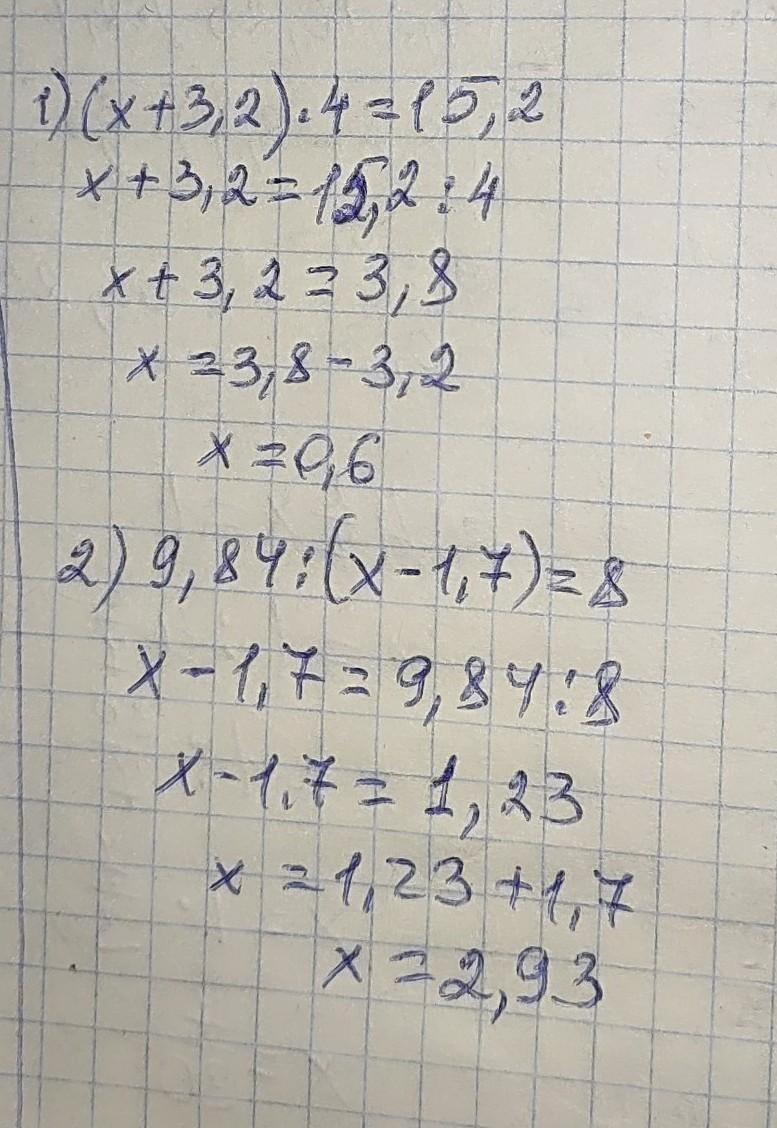 1) (x+3,2)·4=15,2
x+3,2=15,2:4
x+3,2=3,8
x=3,8-3,2
x=0,6
2) 9,84:(x-1,7)=8
x-1,7=9,84:8
x-1,7=1,23
x=1,23+1,7
x=2,93